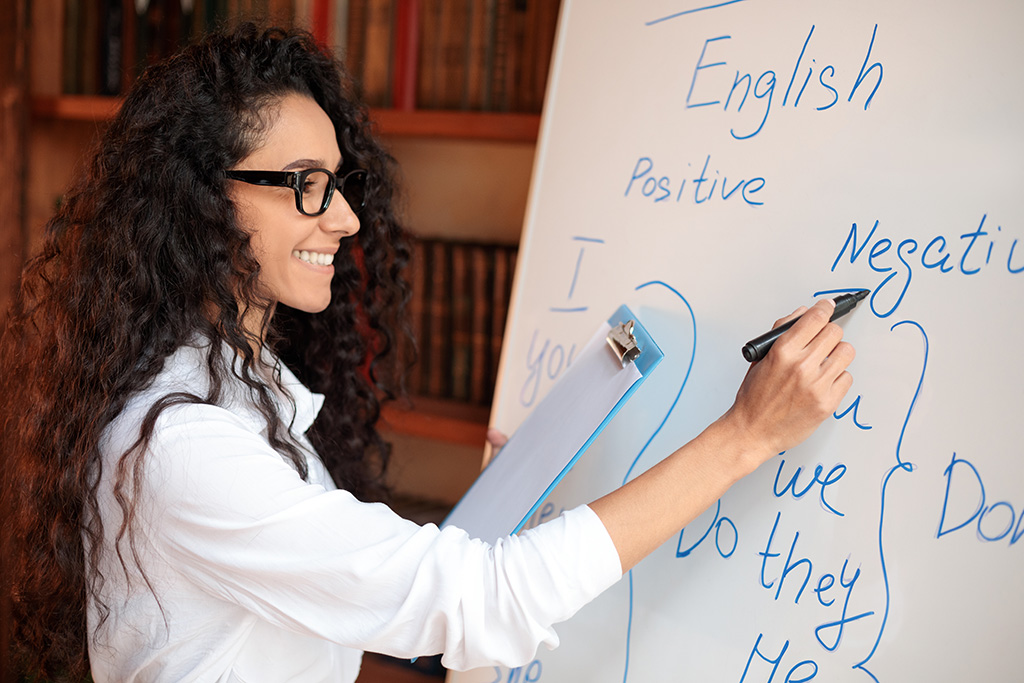 English
Positive
Negativ
I
you
we
Do
they
Don
Me